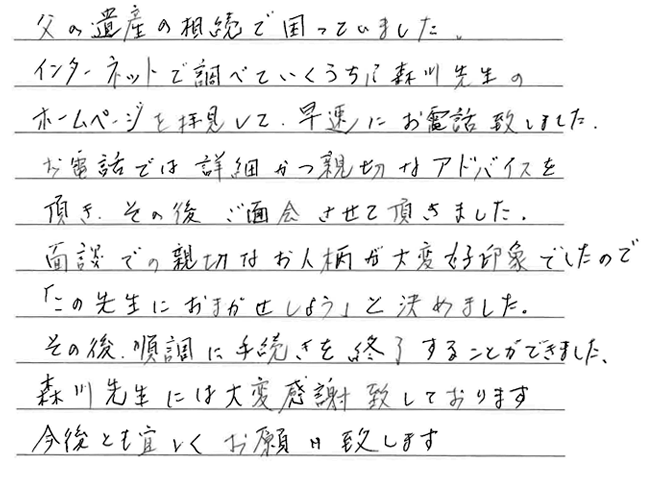 父の遺産の相続で困っていました。
インターネットで調べていくうちに森川先生の
ホームページを拝見して、早速にお電話致しました。
お電話では詳細かつ親切なアドバイスを
頂き、その後ご面会させて頂きました。
面談での親切なお人柄が大変好印象でしたので
「この先生におまかせしよう」と決めました。
その後、順調に手続きを終了することができました、
森川先生には大変感謝致しております
今後とも宜しくお願い致します